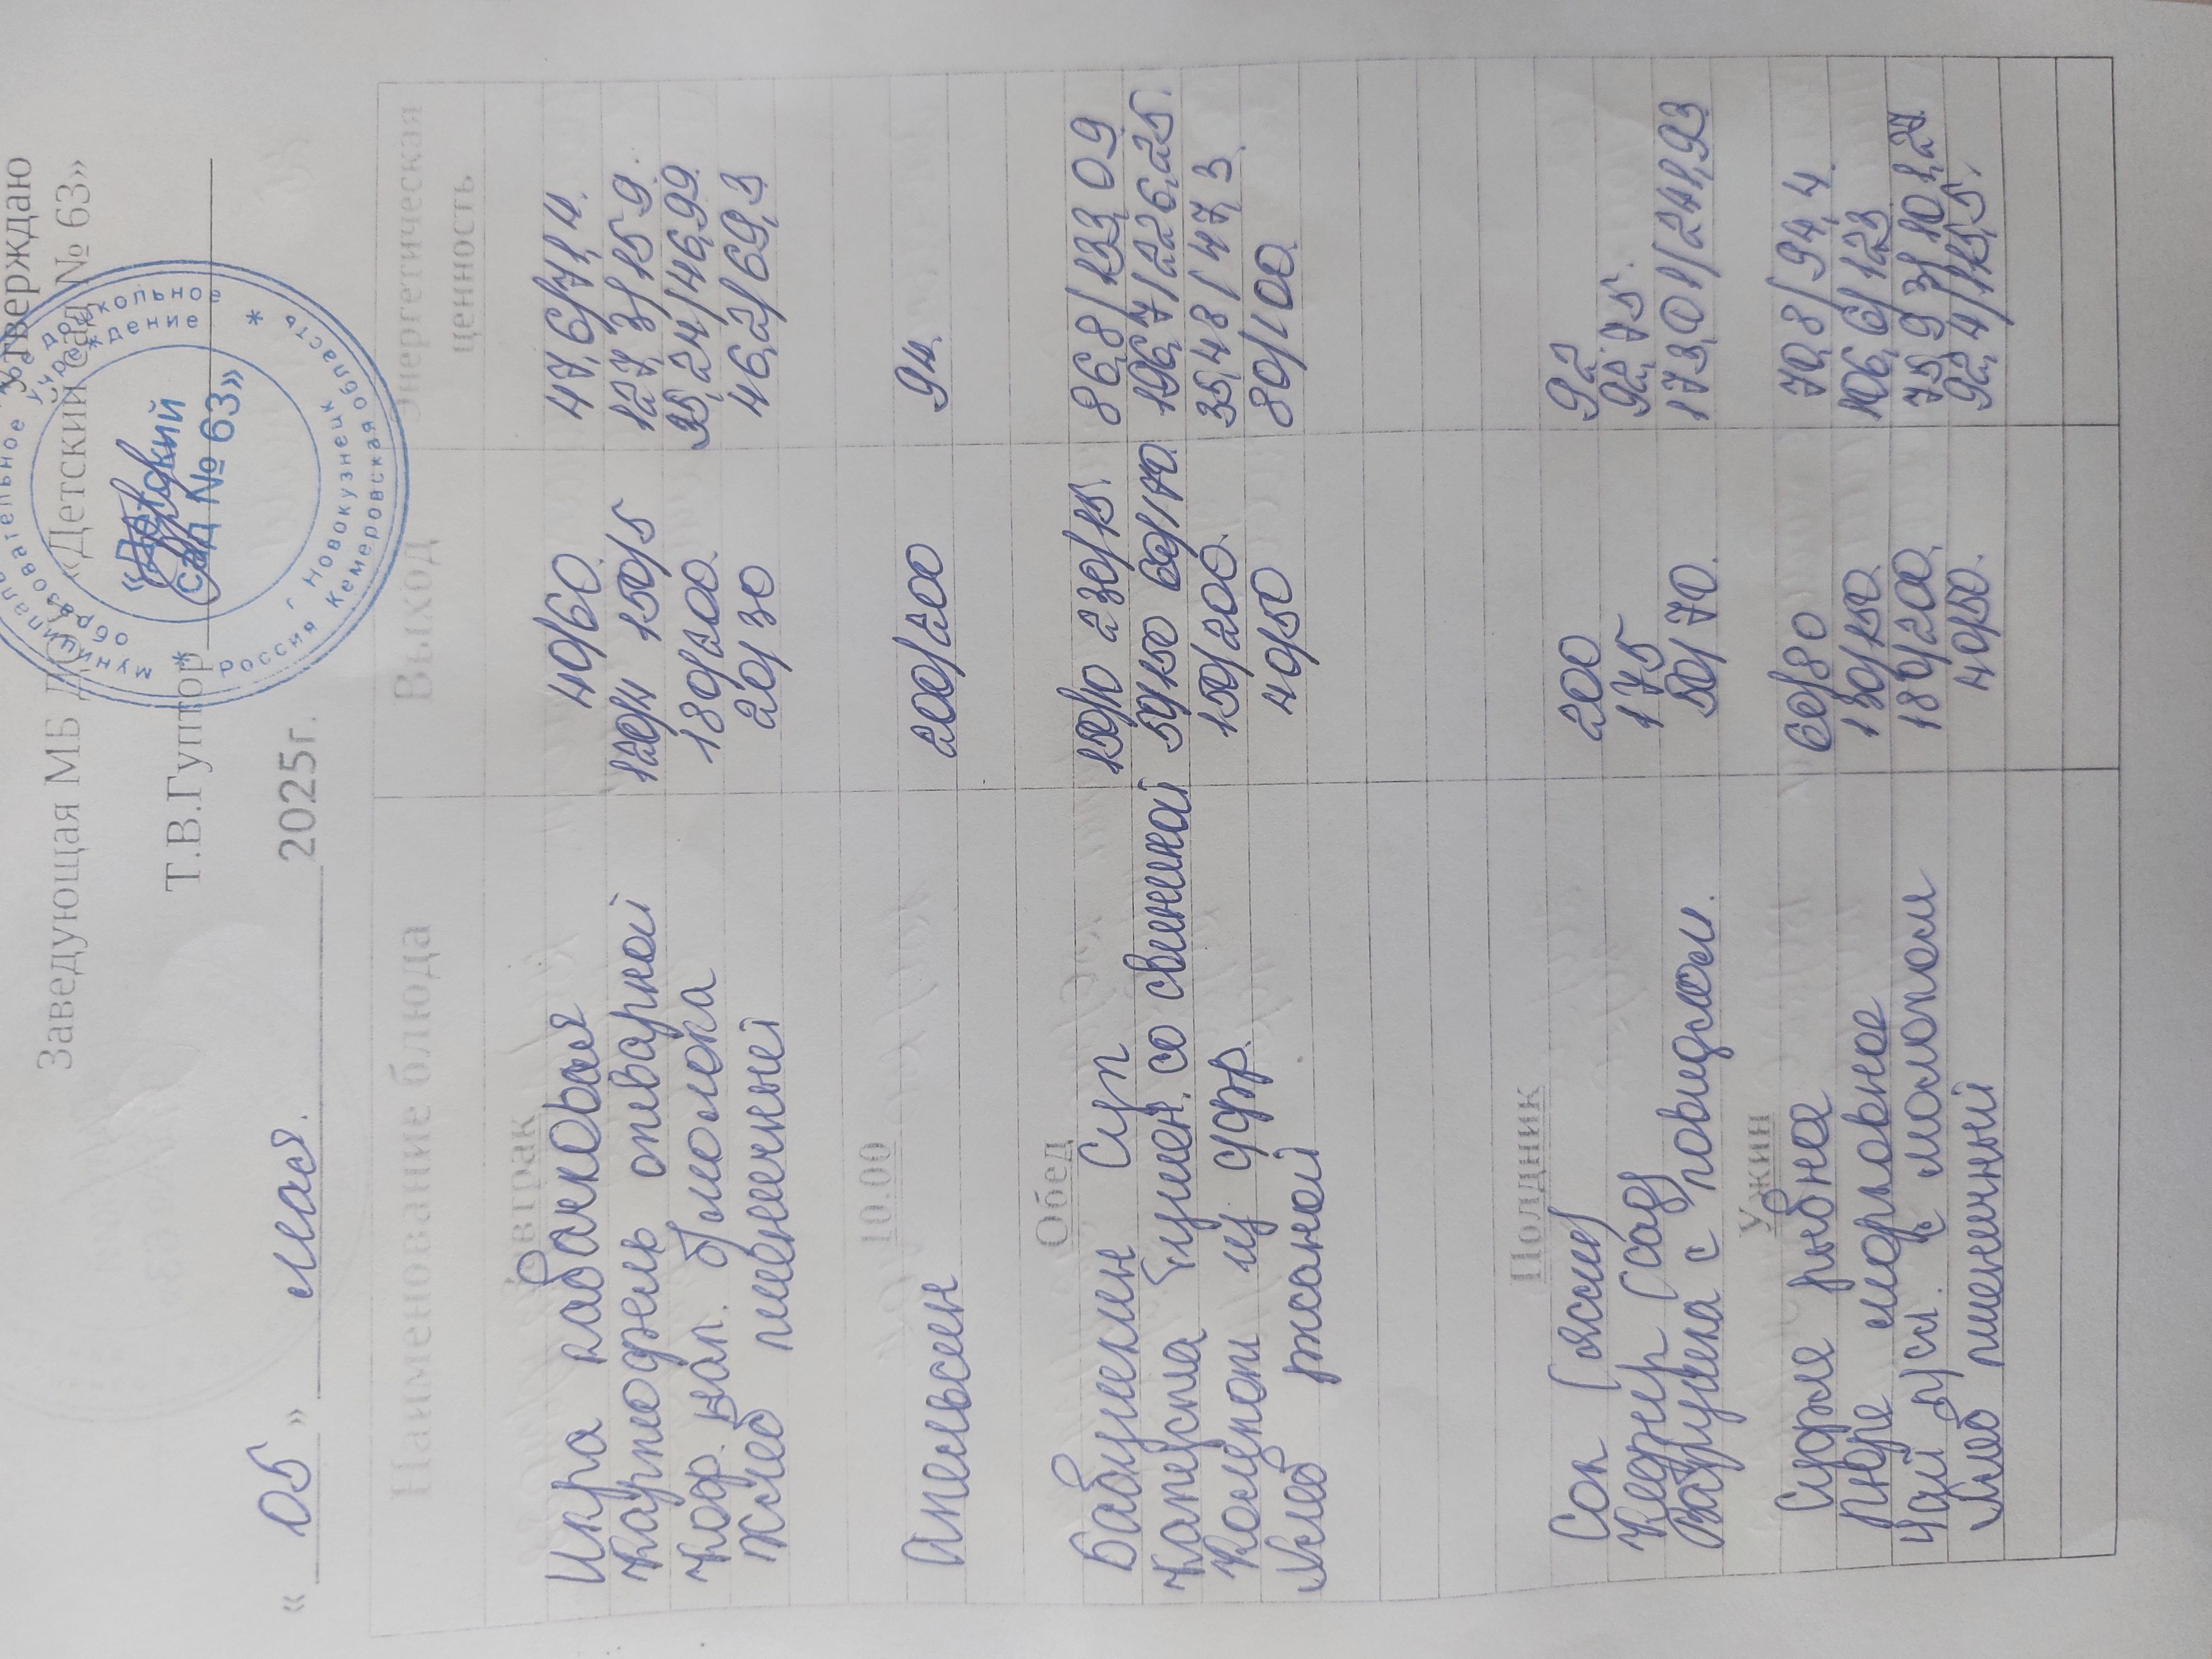 Утверждаю
Заведующая МБ ДОУ «Детский сад № 63»
Т.В.Гуптор
« 05 » мая. 2025г.
муниципальное дошкольное образовательное учреждение
* Россия г Новокузнецк Кемеровская область *
«Детский сад № 63»
Наименование блюда Выход Энергетическая ценность
Завтрак
Икра кабачковая 40/60 47,6/71,4.
Картофель отварной 120/4 150/5 127,3/159.
Коф. нап. б/молока 180/200 35,24/46,99
Хлеб пшеничный 20/30 46,2/69,3
10.00
Апельсин 200/200 94.
Обед
Бабушкин Суп 150/10 230/15. 86,8/133,09
Капуста тушен. со свининой 50/150 60/170. 196,7/226,25.
Компот из с/фр. 150/200. 35,48/47,3
Хлеб ржаной 40/50 80/100.
Полдник
Сок (ясли) 200 92
Кефир (сад) 175 92,75.
Ватрушка с повидлом. 50/70. 173,01/241,93
Ужин
Суфле рыбное 60/80 70,8/94,4.
Пюре морковное 130/150. 106,6/123
Чай п/сл. с молоком 180/200. 75,93/101,27
Хлеб пшеничный 40/50. 92,4/115,5.